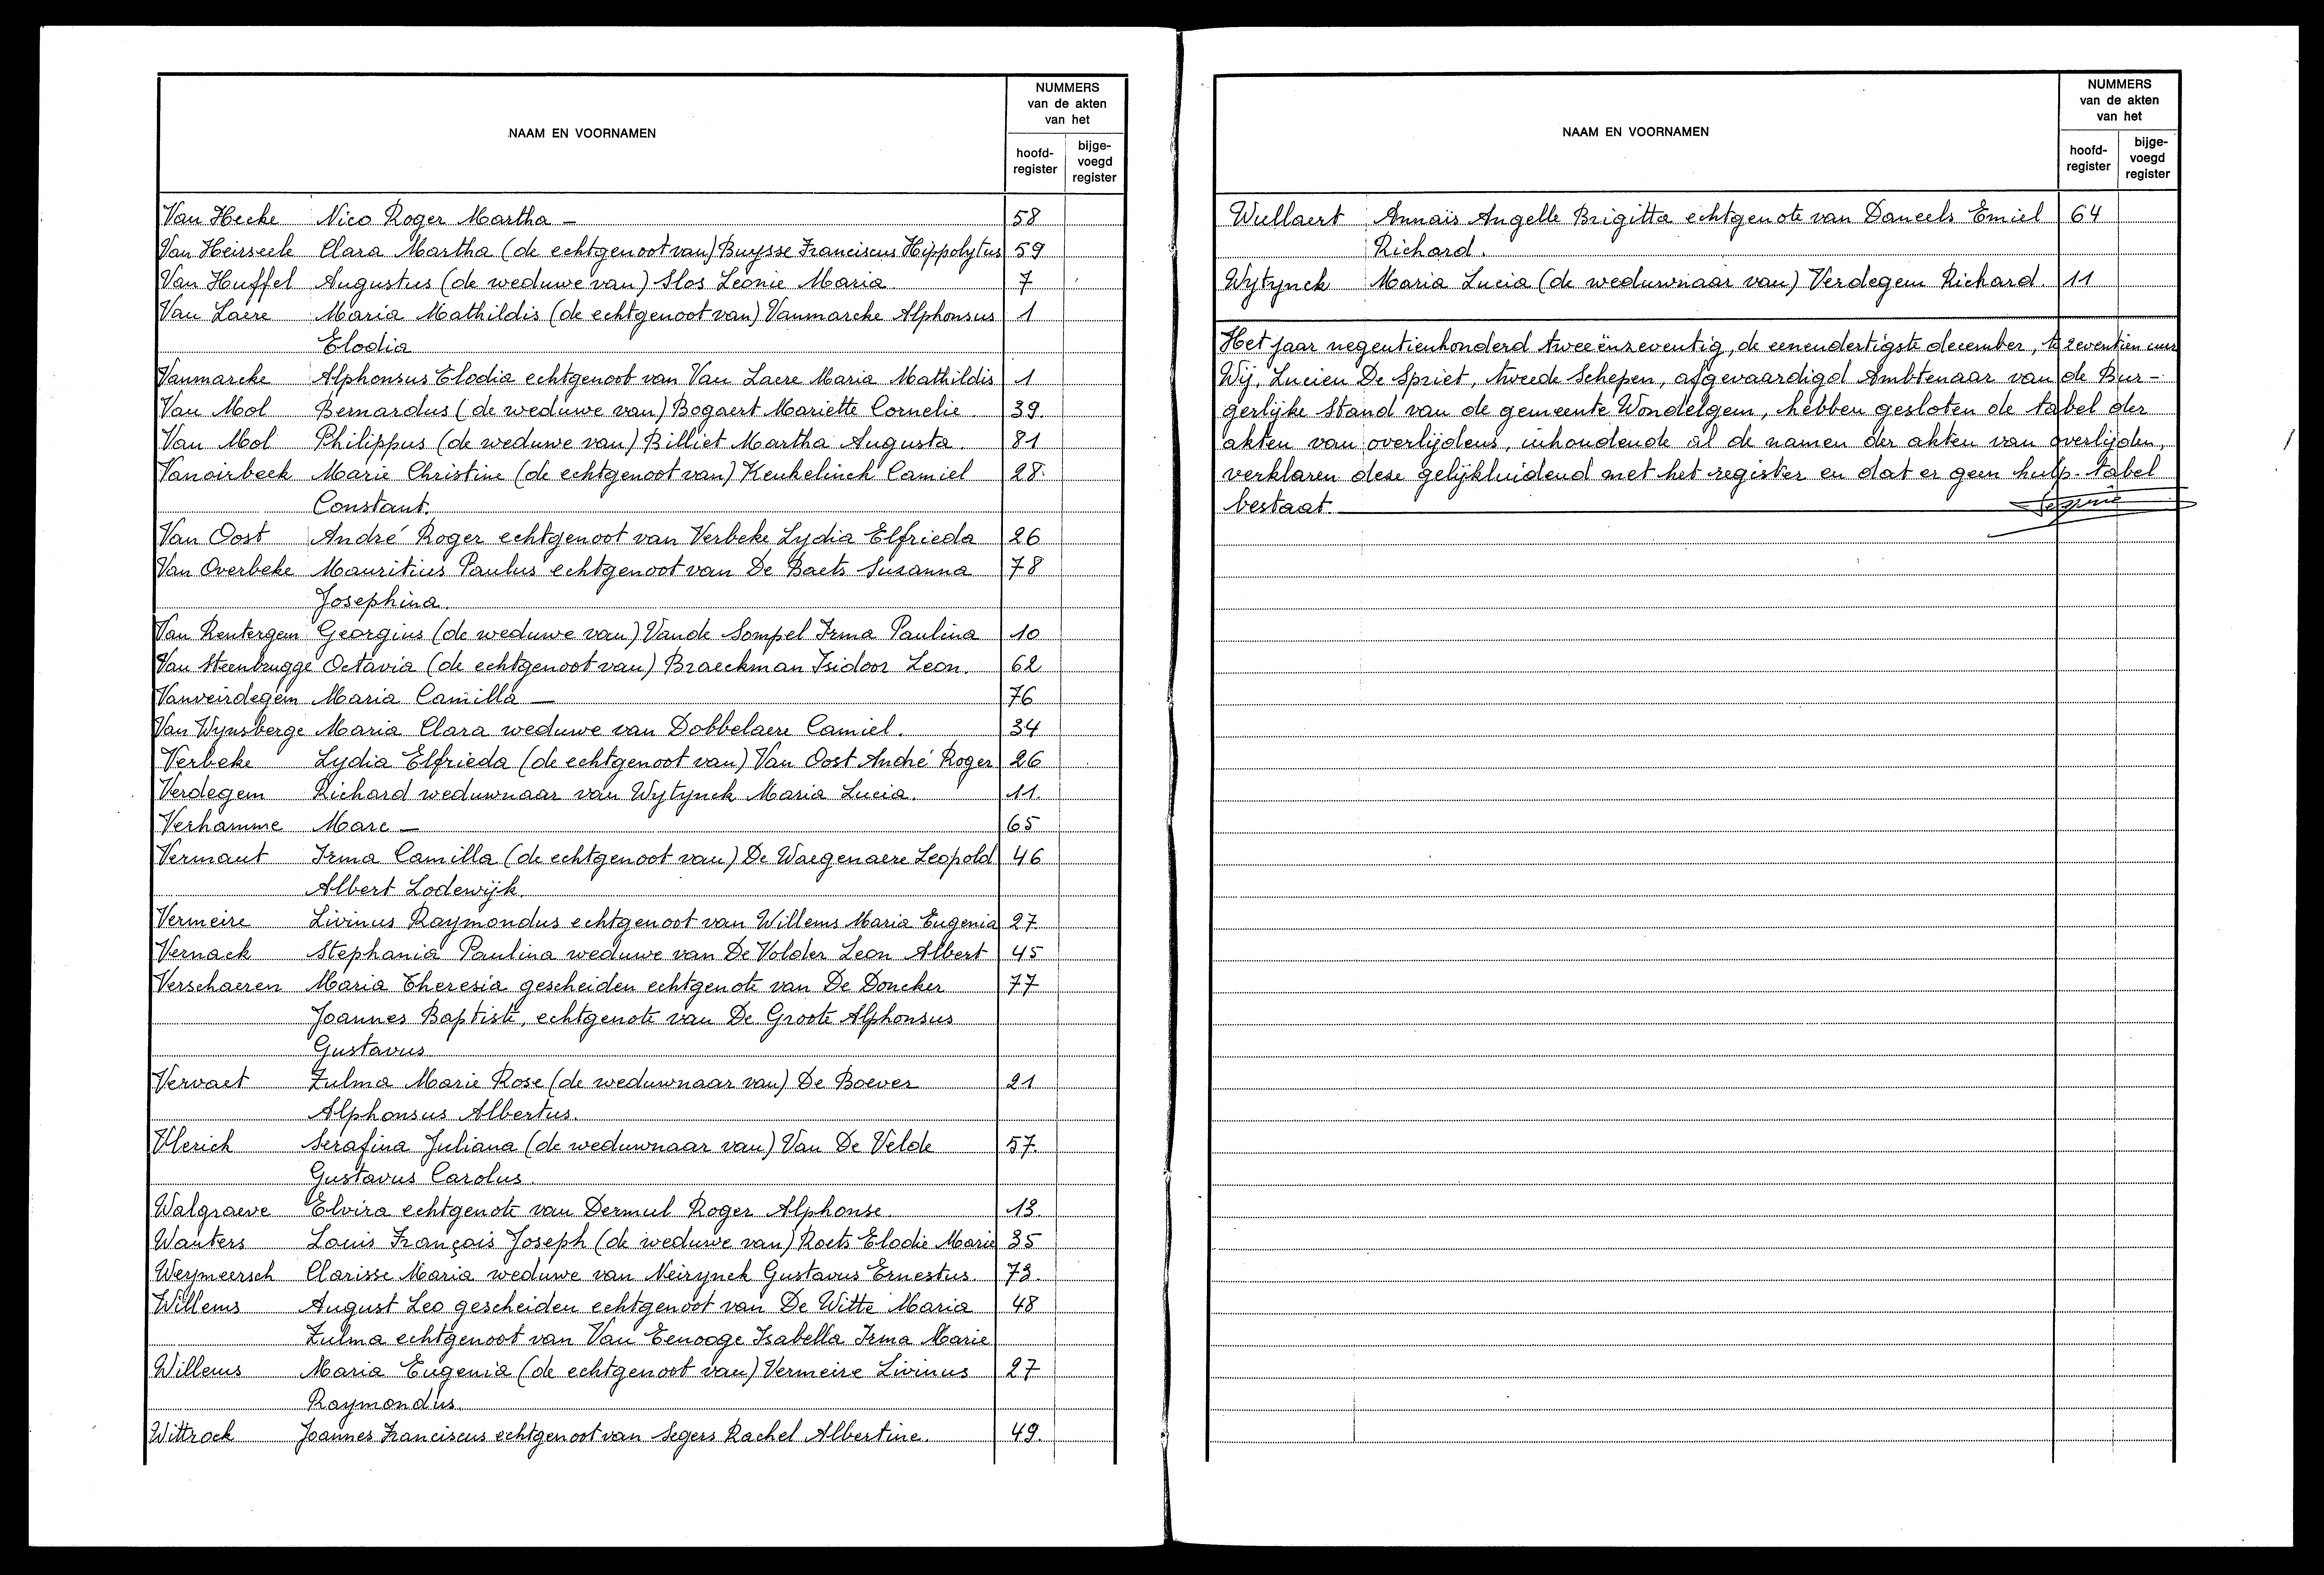 NAAM EN VOORNAMEN
NUMMERS
van de akten
van het
hoofd-
register
bijge-
voegd
register
Van Hecke Nico Roger Martha – 58
Van Heirseele Clara Martha (de echtgenoot van) Buysse Franciscus Hippolytus 59
Van Huffel Augustus (de weduwe van) Slos Leonie Maria 7
Van Laere Maria Mathildis (de echtgenoot van) Vanmarcke Alphonsus 1
Elodia
Vanmarcke Alphonsus Elodia echtgenoot van Van Laere Maria Mathildis 1
Van Mol Bernardus (de weduwe van) Bogaert Mariette Cornelie 39.
Van Mol Philippus (de weduwe van) Billiet Martha Augusta. 81
Vanoirbeek Marie Christine (de echtgenoot van) Keukelinck Camiel 28.
Constant.
Van Oost André Roger echtgenoot van Verbeke Lydia Elfrieda 26
Van Overbeke Mauritius Paulus echtgenoot van De Baets Susanna 78
Josephina.
Van Rentergem Georgius (de weduwe van) Vande Sompel Irma Paulina 10
Van Steenbrugge Octavia (de echtgenoot van) Braeckman Isidoor Leon. 62
Vanveirdegem Maria Camilla – 76
Van Wynsberge Maria Clara weduwe van Dobbelaere Camiel. 34
Verbeke Lydia Elfrieda (de echtgenoot van) Van Oost André Roger 26
Verdegem Richard weduwnaar van Wytynck Maria Lucia. 11.
Verhamme Marc – 65
Vermaut Irma Camilla (de echtgenoot van) De Waegenaere Leopold 46
Albert Lodewijk.
Vermeire Livinus Raymondus echtgenoot van Willems Maria Eugenia 27.
Vernack Stephania Paulina weduwe van De Volder Leon Albert 45
Verschaeren Maria Theresia gescheiden echtgenote van De Doncker 77
Joannes Baptiste, echtgenote van De Groote Alphonsus
Gustavus
Vervaet Zulma Marie Rose (de weduwnaar van) De Boever 21
Alphonsus Albertus.
Vlerick Serafina Juliana (de weduwnaar van) Van De Velde 57.
Gustavus Carolus.
Walgraeve Elvira echtgenote van Dermul Roger Alphonse. 13.
Wauters Louis François Joseph (de weduwe van) Roets Elodie Marie 35
Weymeersch Clarisse Maria weduwe van Neirynck Gustavus Ernestus. 73.
Willems August Leo gescheiden echtgenoot van De Witte Maria 48
Zulma echtgenoot van Van Eenooge Isabella Irma Marie
Willems Maria Eugenia (de echtgenoot van) Vermeire Livinus 27
Raymondus.
Wittrock Joannes Franciscus echtgenoot van Segers Rachel Albertine. 49.
NAAM EN VOORNAMEN
NUMMERS
van de akten
van het
hoofd-
register
bijge-
voegd
register
Wullaert Annaïs Angelle Brigitta echtgenote van Daneels Emiel 64
Richard.
Wytynck Maria Lucia (de weduwnaar van) Verdegem Richard. 11
Het jaar negentienhonderd tweeënzeventig, de eenendertigste december, te zeventien uur
Wij, Lucien De Spriet, tweede Schepen, afgevaardigd Ambtenaar van de Bur-
gerlijke Stand van de gemeente Wondelgem, hebben gesloten de tabel der
akten van overlijdens, inhoudende al de namen der akten van overlijden,
verklaren deze gelijkluidend met het register en dat er geen hulp-tabel
bestaat.